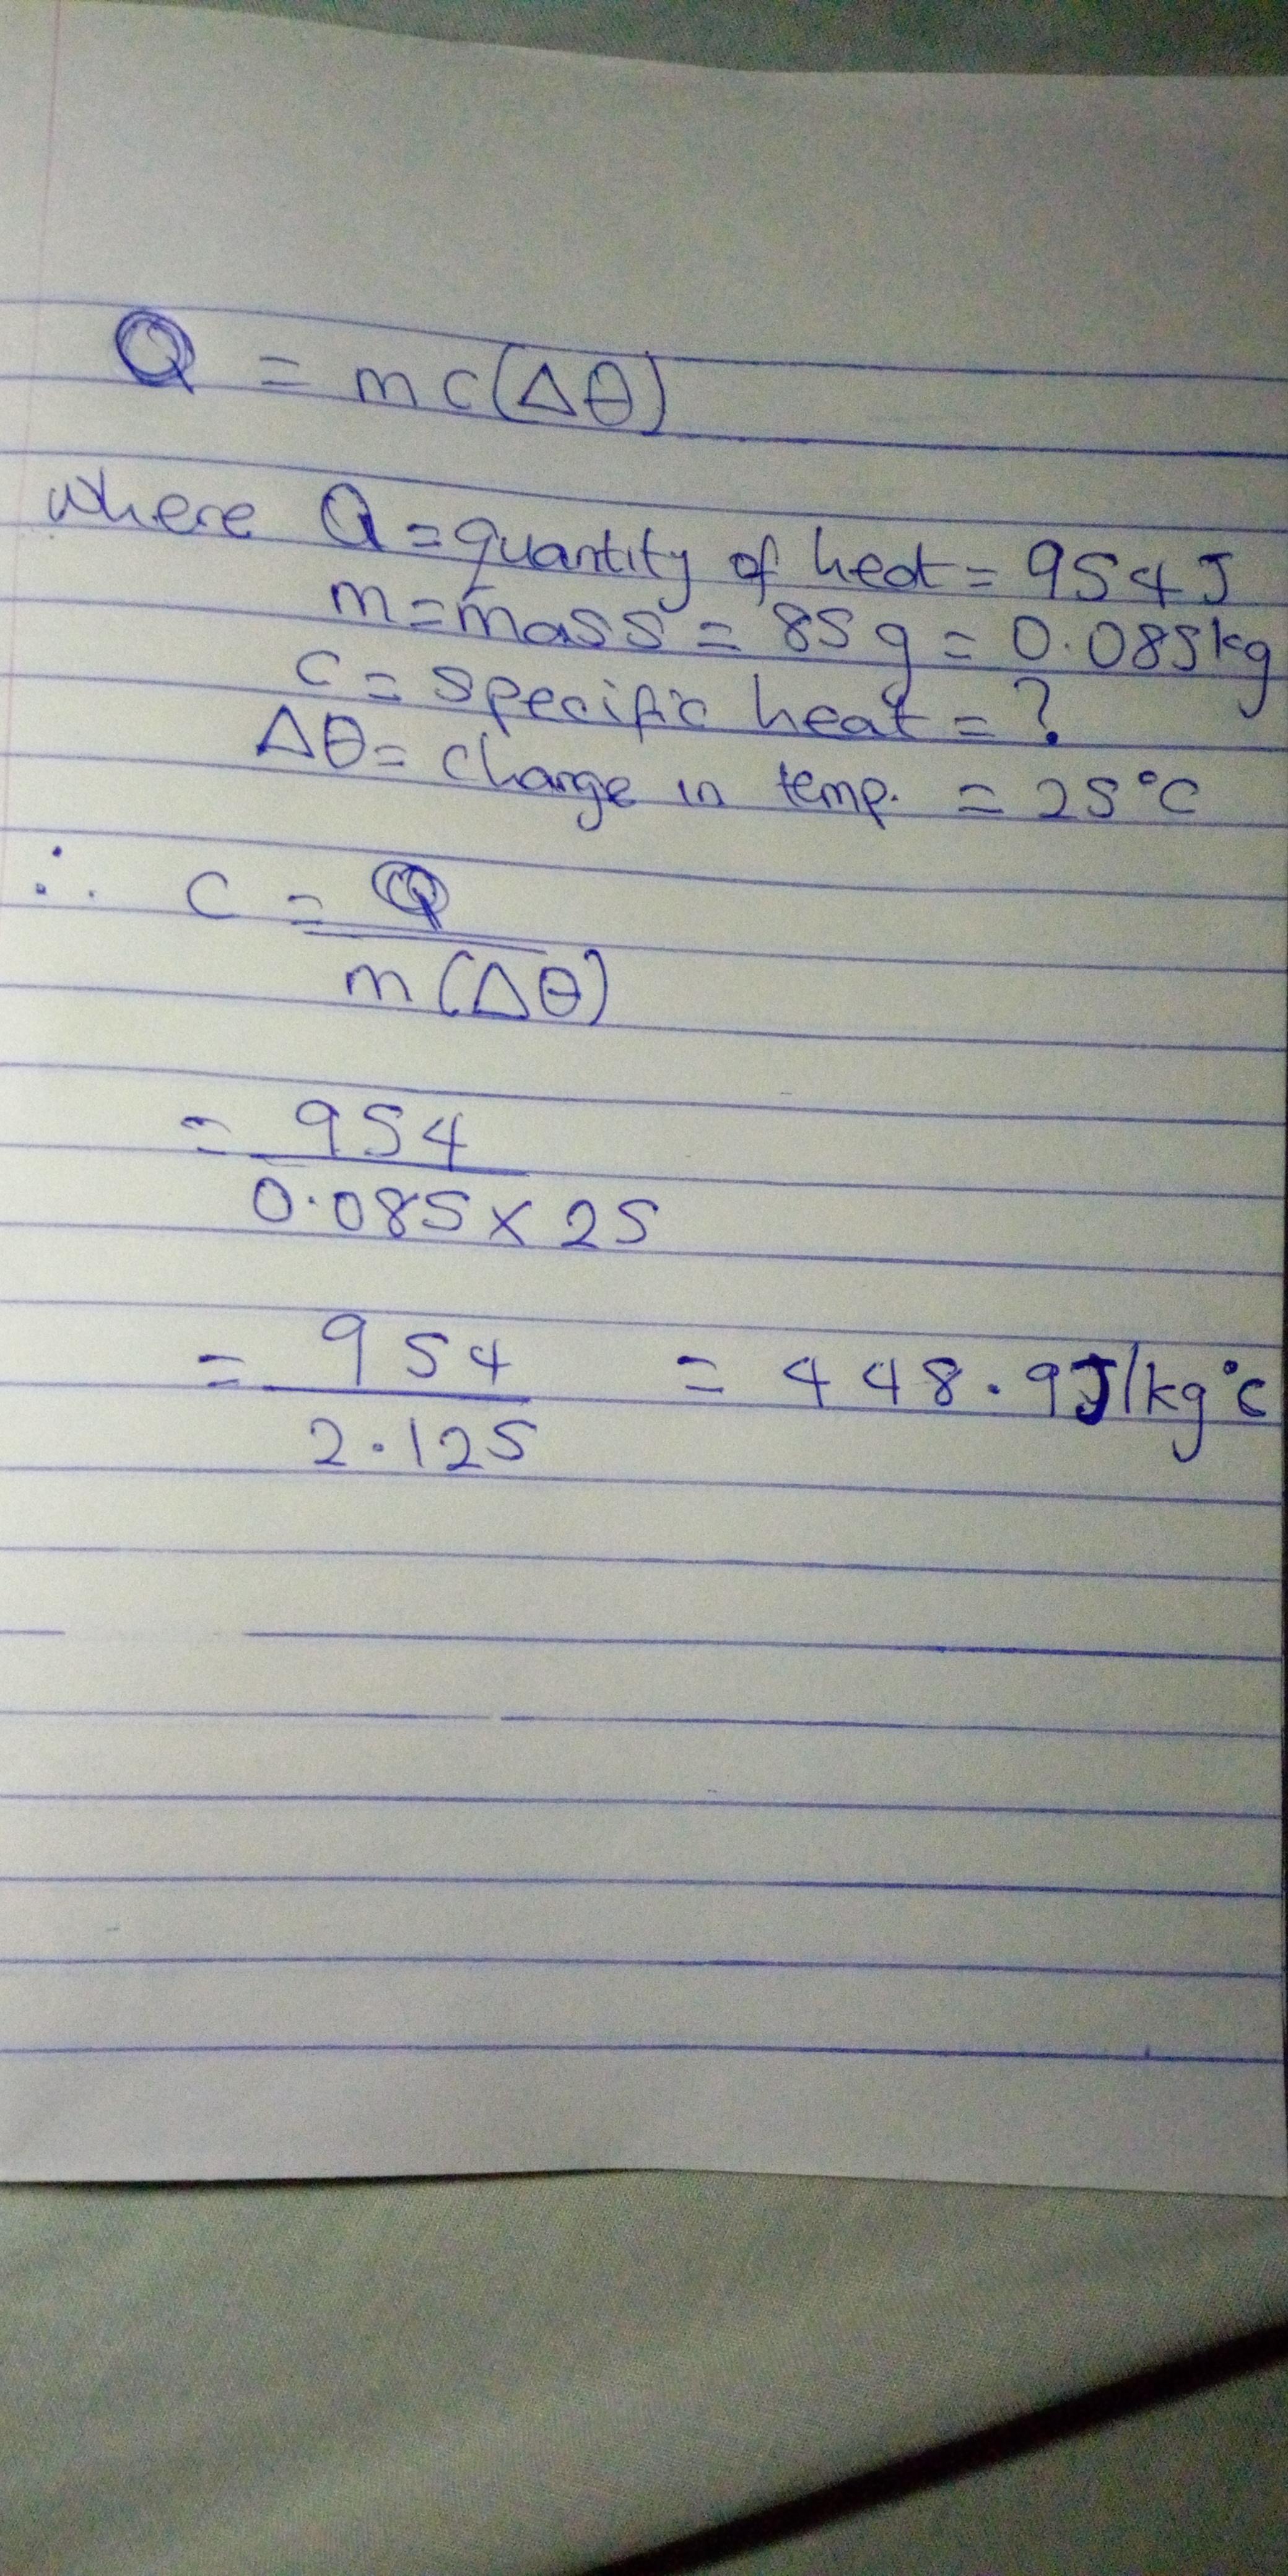 Q = mc(Δθ)
where Q = quantity of heat = 954J
m = mass = 85g = 0.085kg
c = specific heat = ?
Δθ = change in temp. = 25°C
∴ C = Q
m(Δθ)
= 954
0.085 × 25
= 954 = 448.9J/kg°C
2.125